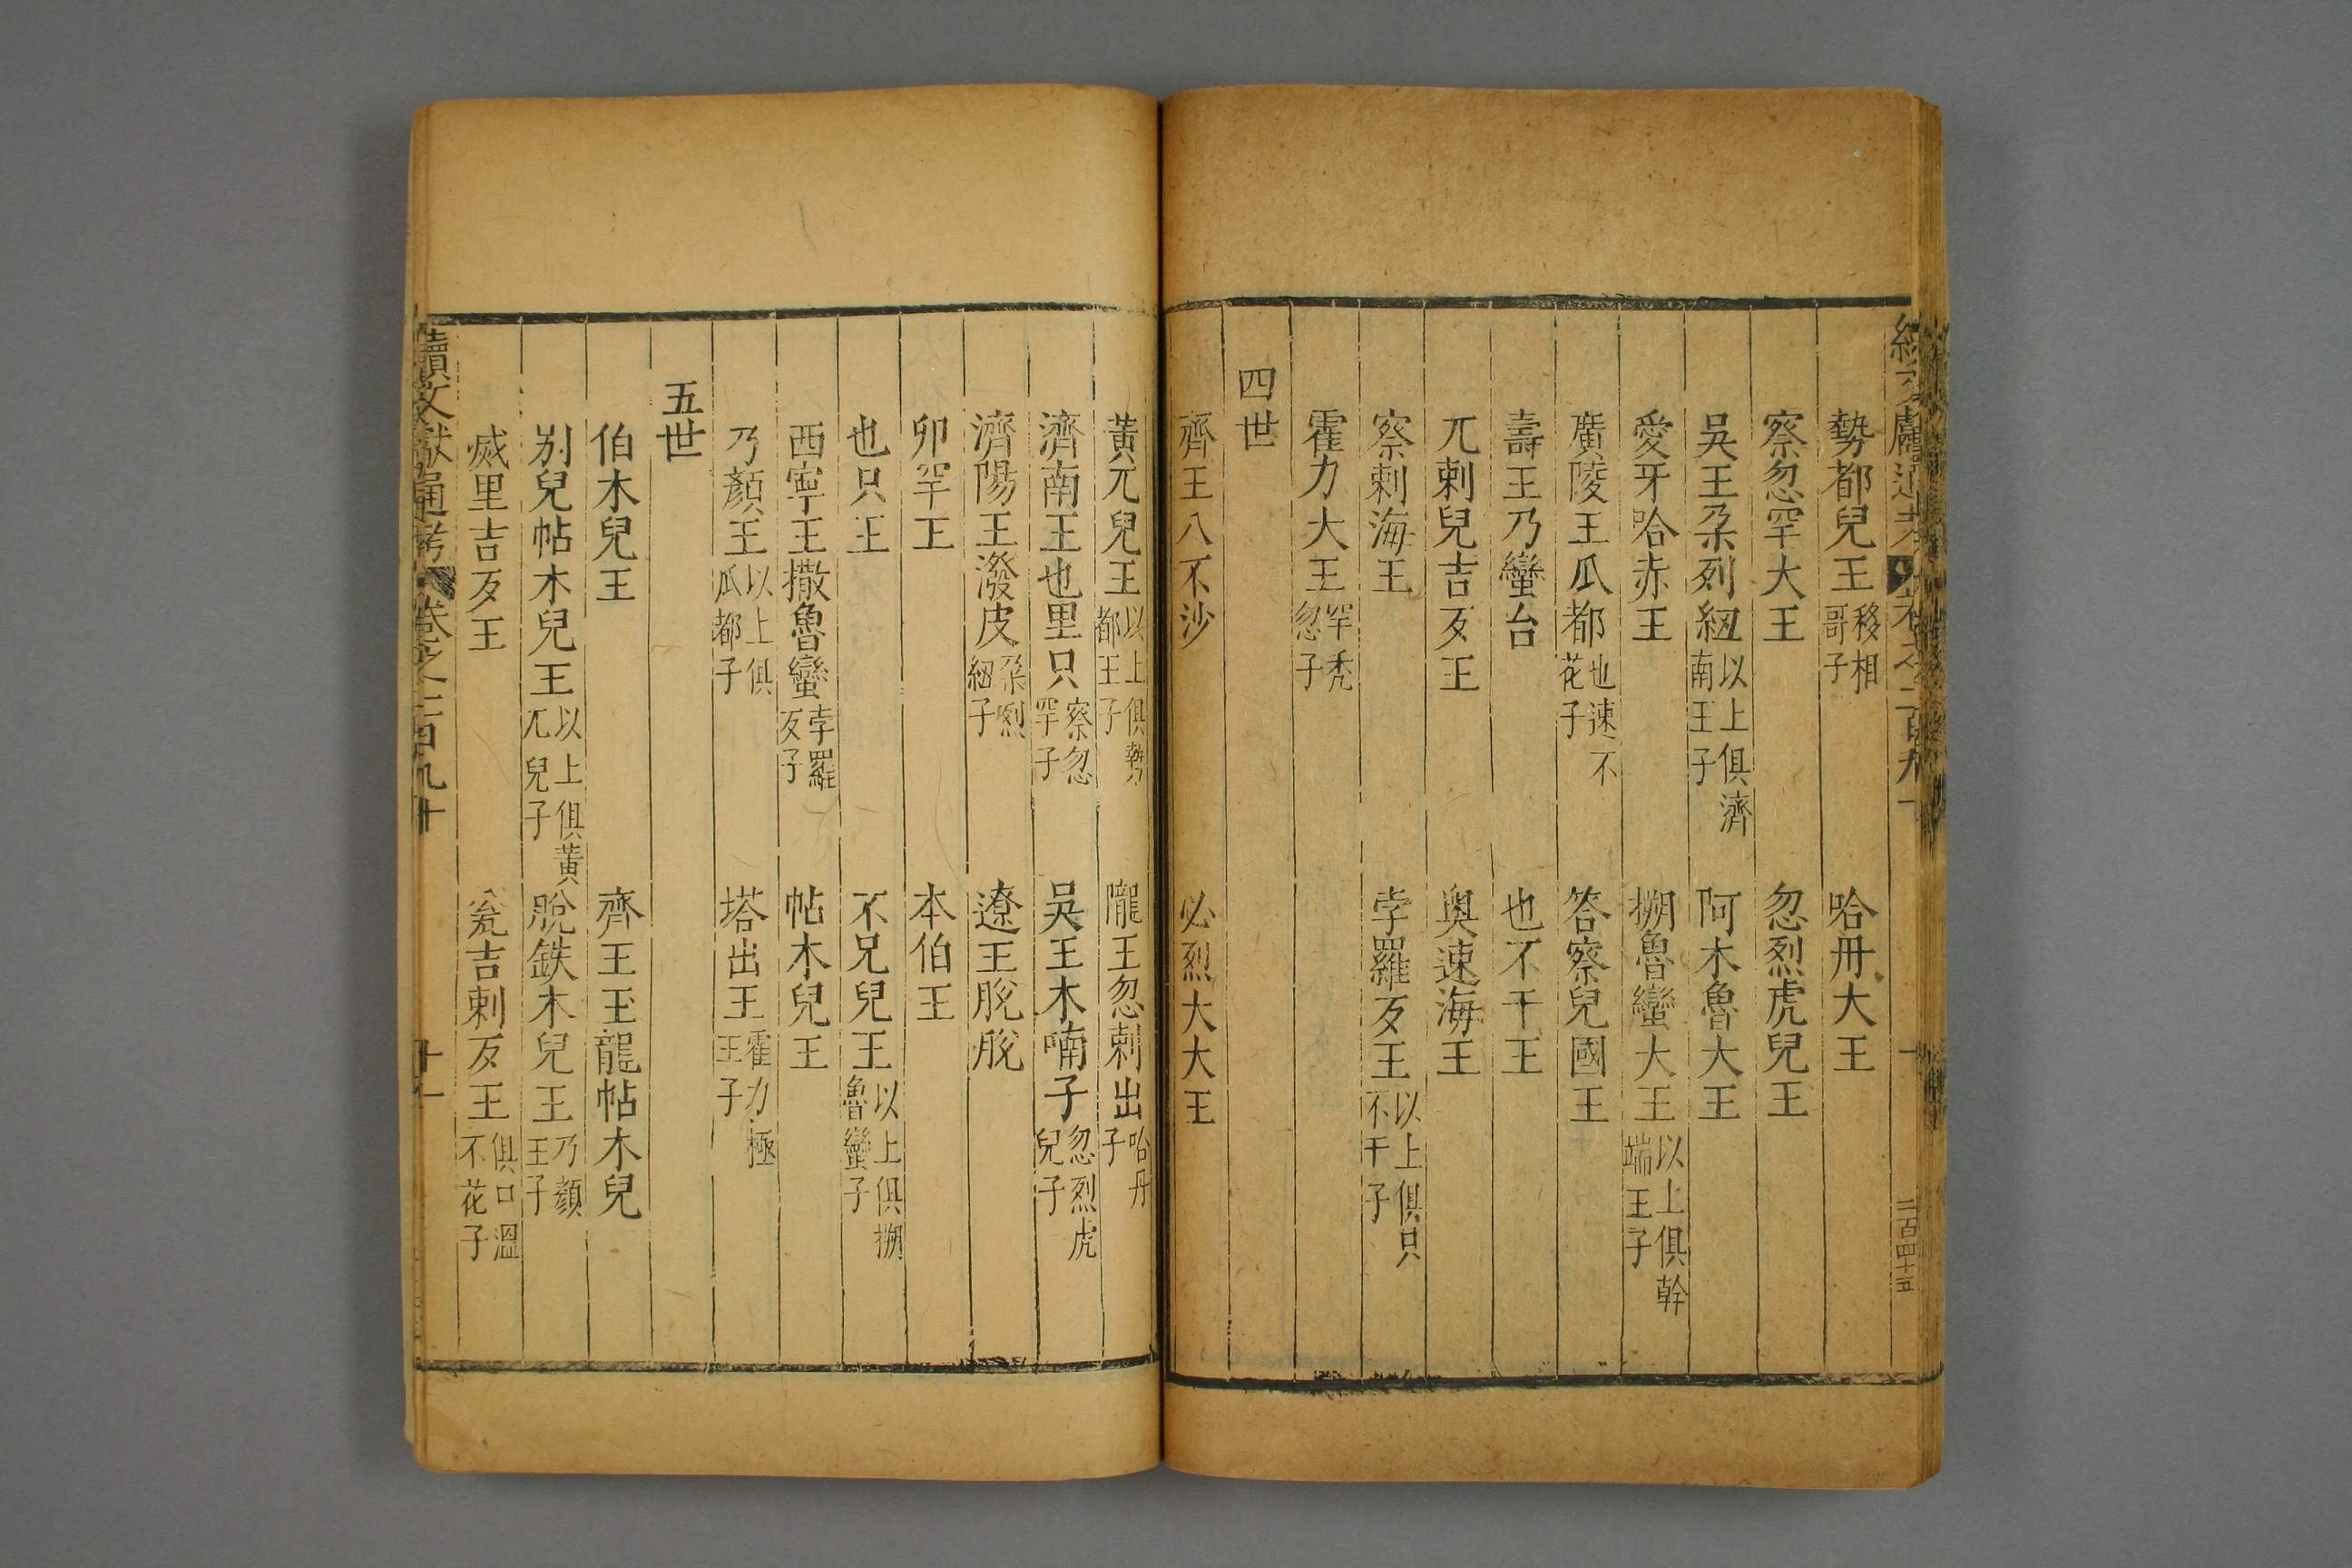 勢都兒王移相哥子 哈丹大王
察忽罕大王 忽烈虎兒王
吳王朶列紉以上俱濟南王子 阿木魯大王
愛牙哈赤王 搠魯蠻大王以上俱幹端王子
廣陵王瓜都也速不花子 答察兒國王
壽王乃蠻台 也不干王
兀剌兒吉歹王 奧速海王
察剌海王 孛羅歹王以上俱只不干子
霍力大王罕禿忽子
四世
齊王八不沙 必烈大大王
黃兀兒王以上俱勢都王子 隴王忽剌出哈丹子
濟南王也里只察忽罕子 吳王木喃子忽烈虎兒子
濟陽王潑皮朶列紉子 遼王脫脫
卯罕王 本伯王
也只王 不兄兒王以上俱搠魯蠻子
西寧王撒魯蠻孛羅歹子 帖木兒王
乃顏王以上俱瓜都子 塔出王霍力極王子
五世
伯木兒王 齊王玉龍帖木兒
別兒帖木兒王以上俱黃兀兒子 脫鉄木兒王乃顏王子
烕里吉歹王 瓮吉剌歹王俱口溫不花子
續文獻通考 卷之二百九十 十一